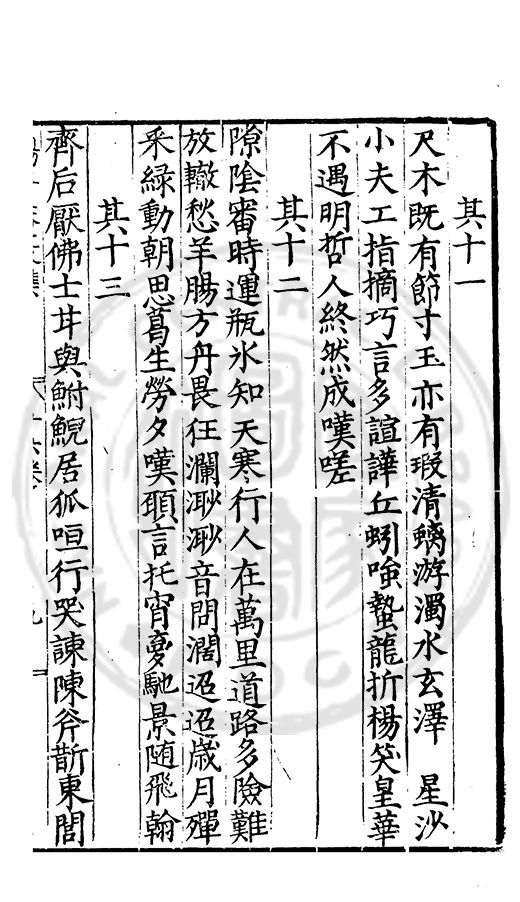 其十一
尺木既有節寸玉亦有瑕清螭游濁水玄澤 星沙
小夫工指摘巧言多諠譁丘蚓嗤蟄龍折楊笑皇華
不遇明哲人終然成嘆嗟
其十二
隙陰審時運瓶氷知天寒行人在萬里道路多險難
放轍愁羊腸方舟畏狂瀾渺渺音問濶迢迢歲月殫
采綠動朝思葛生勞夕嘆頭言托宵夢馳景随飛翰
其十三
齊后厭佛士甘與鮒鯢居狐咺行哭諫陳斧斮東閭